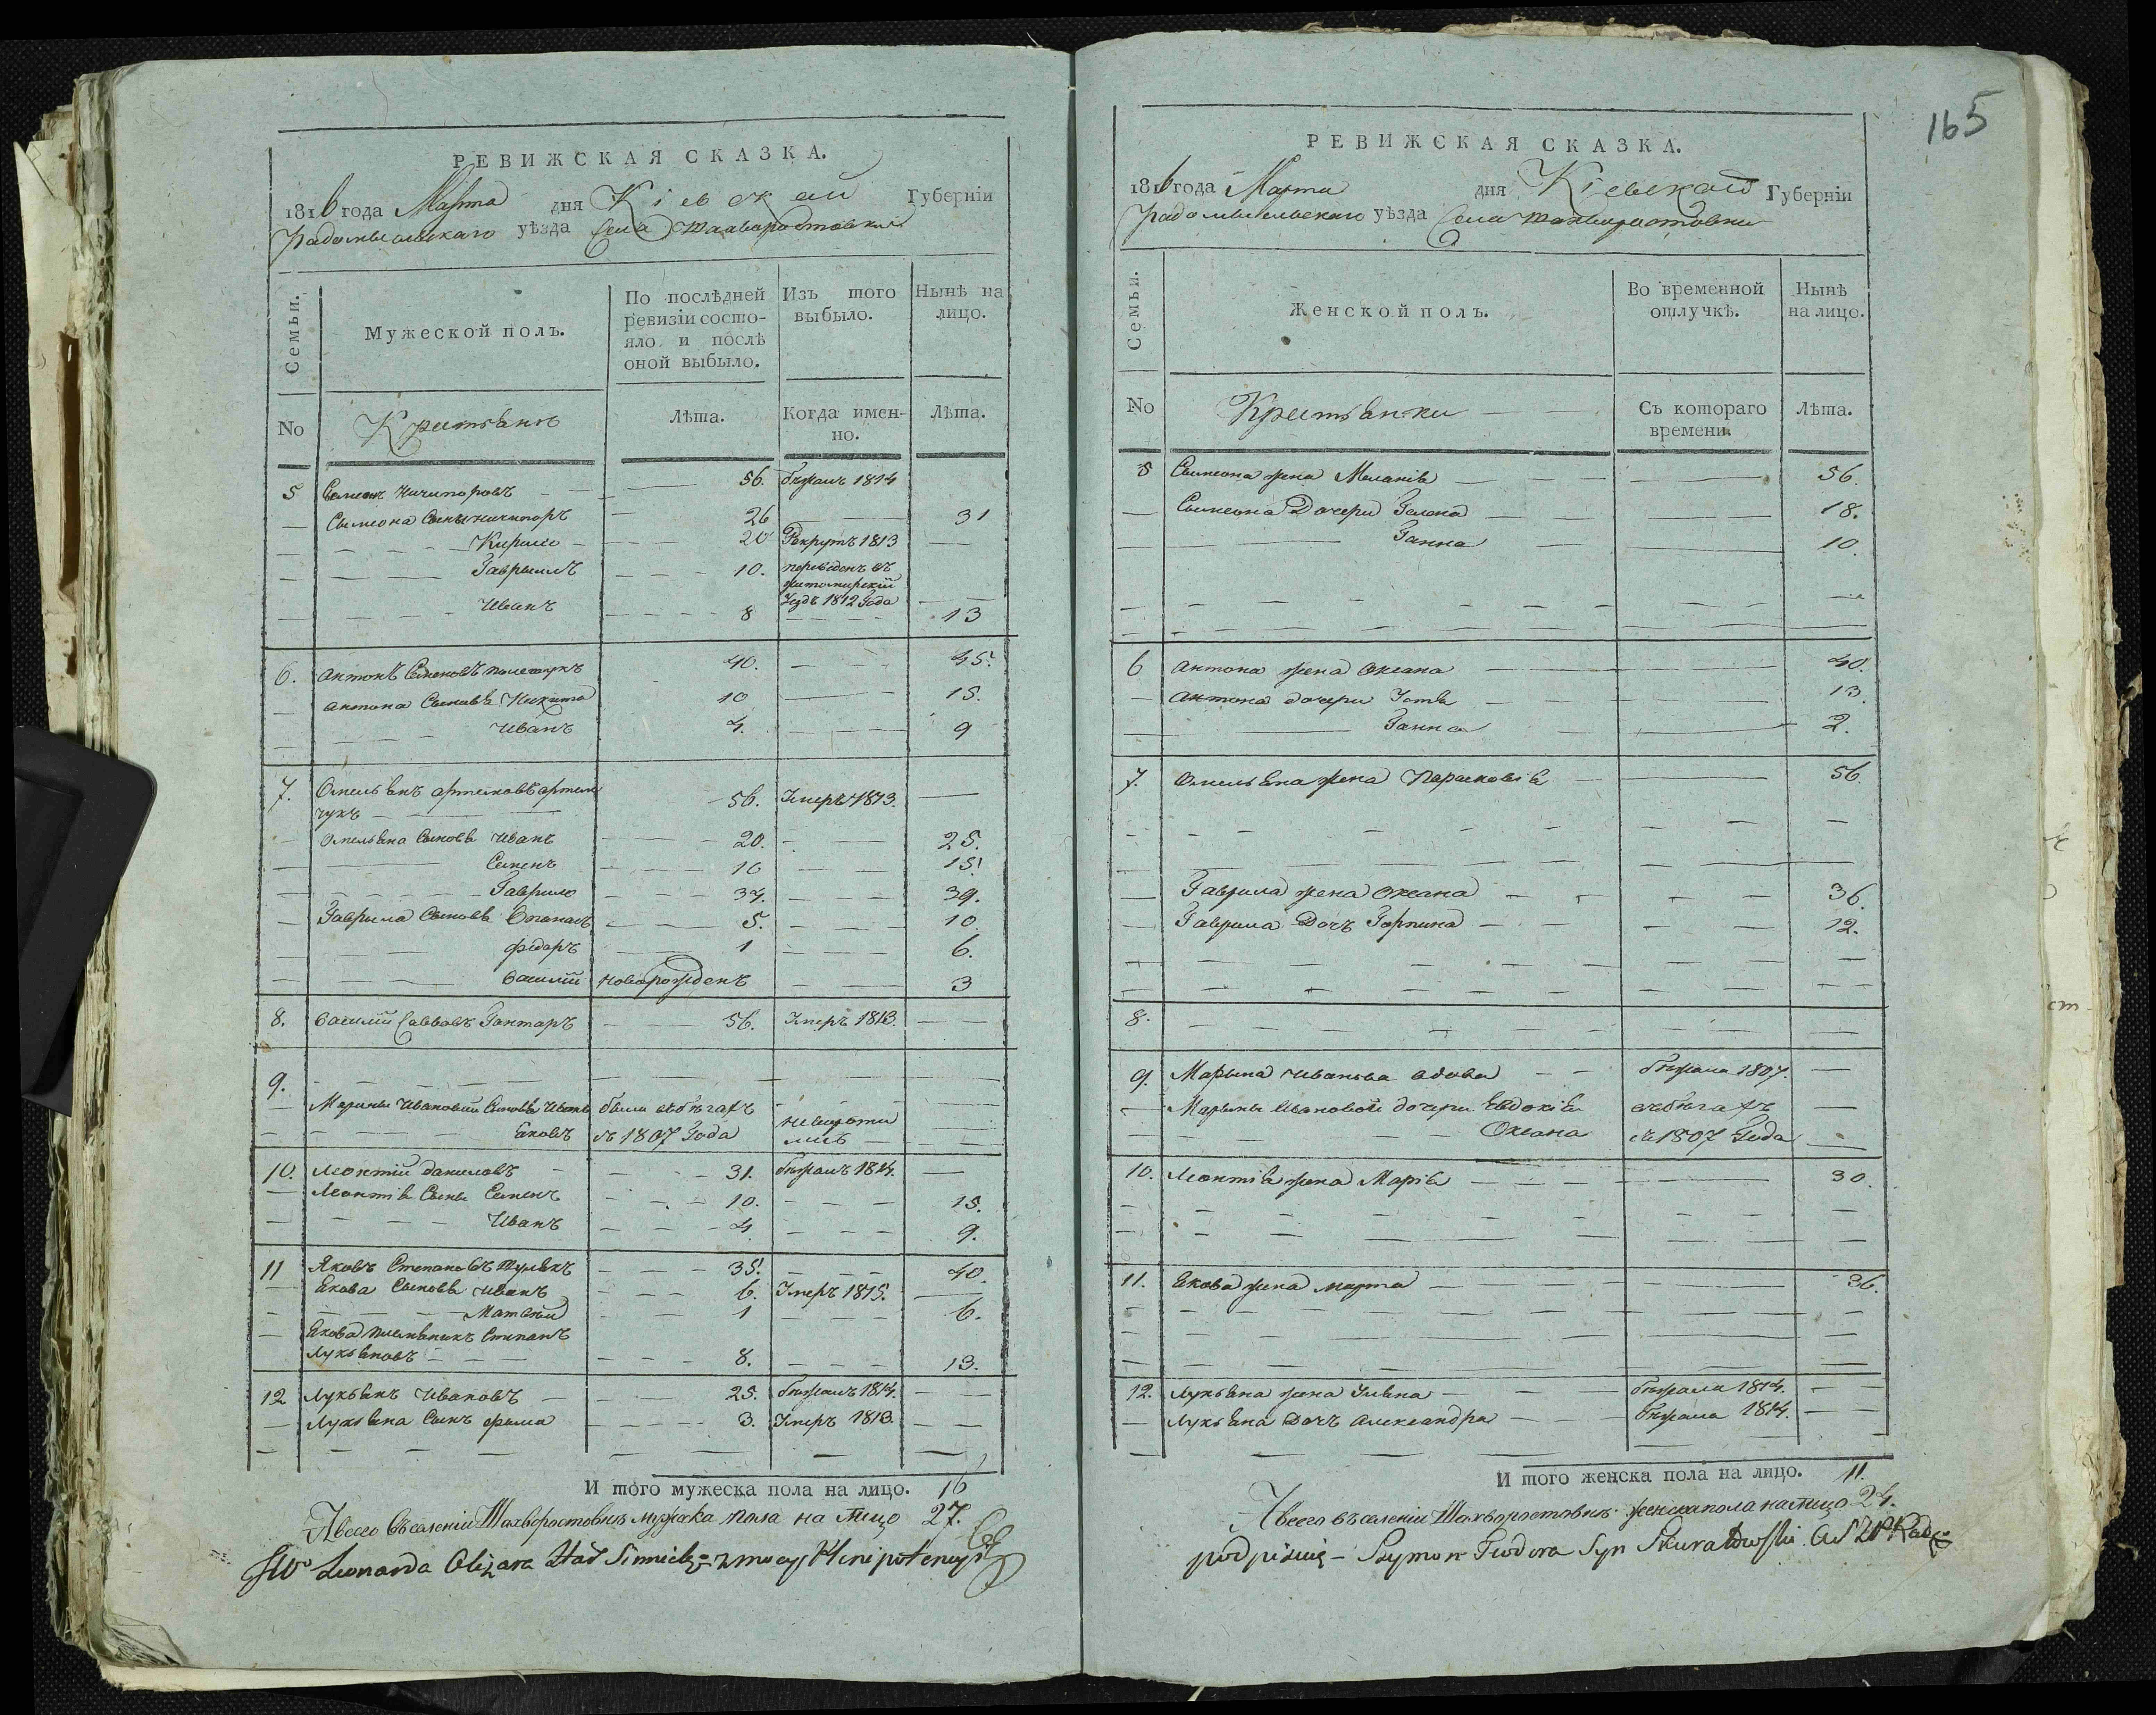 165
РЕВИЖСКАЯ СКАЗКА.
1816 года Марта дня Кіевской Губерніи
Радомысльскаго уѣзда Села Шахворостовки
Семьи.
Мужеской полъ.
По послѣдней ревизіи состо-
яло и послѣ
оной выбыло.
Изъ того
выбыло.
Нынѣ на
лицо.
No
Крестьянъ
Лѣта.
Когда имен-
но.
Лѣта.
5 Симеонъ Ничипоровъ 56. бѣжалъ 1814
Симеона Сынъ Ничипоръ 26 31
Кирило 20 Рекрутъ 1813
Гаврыилъ 10. переведенъ въ
житомирскій
Уездъ 1812 Года
Иванъ 8 13
6. Антонъ Семеновъ 40. 45.
Антона Сыновья Никита 10 15.
Иванъ 4. 9
7. Омельянъ Артемовъ Артем
чукъ 56. Умеръ 1813.
Омельяна Сыновья Иванъ 20. 25.
Семенъ 10 15.
Гаврило 34. 39.
Гаврила Сыновья Опанасъ 5. 10.
Федоръ 1 6.
Василій новорожденъ 3
8. Василій Саввовъ Гонтаръ 56. Умеръ 1813.
9.
Марины Ивановой Сыновья Иванъ были въ бѣгахъ
Яковъ съ 1807 Года
10. Леонтій Даниловъ 31. бѣжалъ 1814.
Леонтія Сыны Семенъ 10. 15.
Иванъ 4 9.
11 Яковъ Степановъ 35. 40.
Якова Сыновья Иванъ 6. Умеръ 1815.
Матвѣй 1 6.
Якова племяникъ Степанъ
Лукьяновъ 8. 13.
12 Лукьянъ Ивановъ 25. бѣжалъ 1814.
Лукьяна Сынъ Фома 3. Умеръ 1813.
И того мужеска пола на лицо. 16
А всего въ селеніи Шахворостовкѣ мужска пола на лицо 27.
Leonarda Olizara
РЕВИЖСКАЯ СКАЗКА.
1816 года Марта дня Кіевской Губерніи
Радомысльскаго уѣзда Села Шахворостовки
Семьи.
Женской полъ.
Во временной
отлучкѣ.
Нынѣ
на лицо.
No
Крестьянки
Съ котораго
времени.
Лѣта.
5 Симеона жена Меланія 56.
Симеона Дочери Гелена 18.
Ганна 10.
6 Антона жена Оксана 40.
Антона дочери 13.
Ганна 2.
7. Омельяна жена Парасковія 56.
Гаврила жена Оксана 36.
Гаврила Дочь Горпина 12.
8.
9. Марына Иванова вдова бѣжала 1807.
Марыны Ивановой дочери Евдокія въ бѣгахъ
Оксана съ 1807 Года
10. Леонтія жена Марія 30.
11. Якова жена Марта 36.
12. Лукьяна жена Уляна бѣжала 1814.
Лукьяна Дочь Александра бѣжала 1814.
И того женска пола на лицо. 11.
А всего въ селеніи Шахворостовкѣ женска пола на лицо 24.
podpisuię - Szymon Teodora Syn Skuratowski